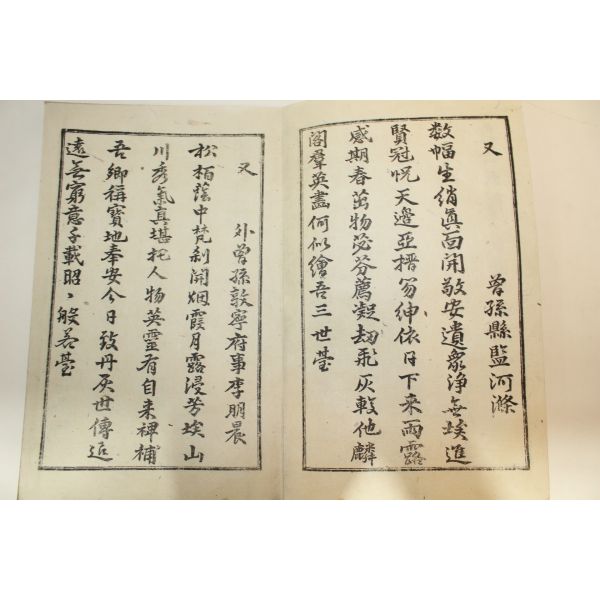 又
曾孫縣監河滌
数幅生綃眞面開敬安遺象浄無埃進
賢冠帨天邊亞搢笏紳依日下来雨露
感期春茁物苾芬薦凝劫飛灰較他麟
閣羣英畵何似繪吾三世䑓
又
外曾孫敦寧府事李明晨
松栢蔭中梵刹開烟霞月露浸芳埃山
川秀氣真堪托人物英靈有自来裨補
吾鄉稱寳地奉安今日致丹灰世傳追
遠無窮意千載昭〻般若䑓